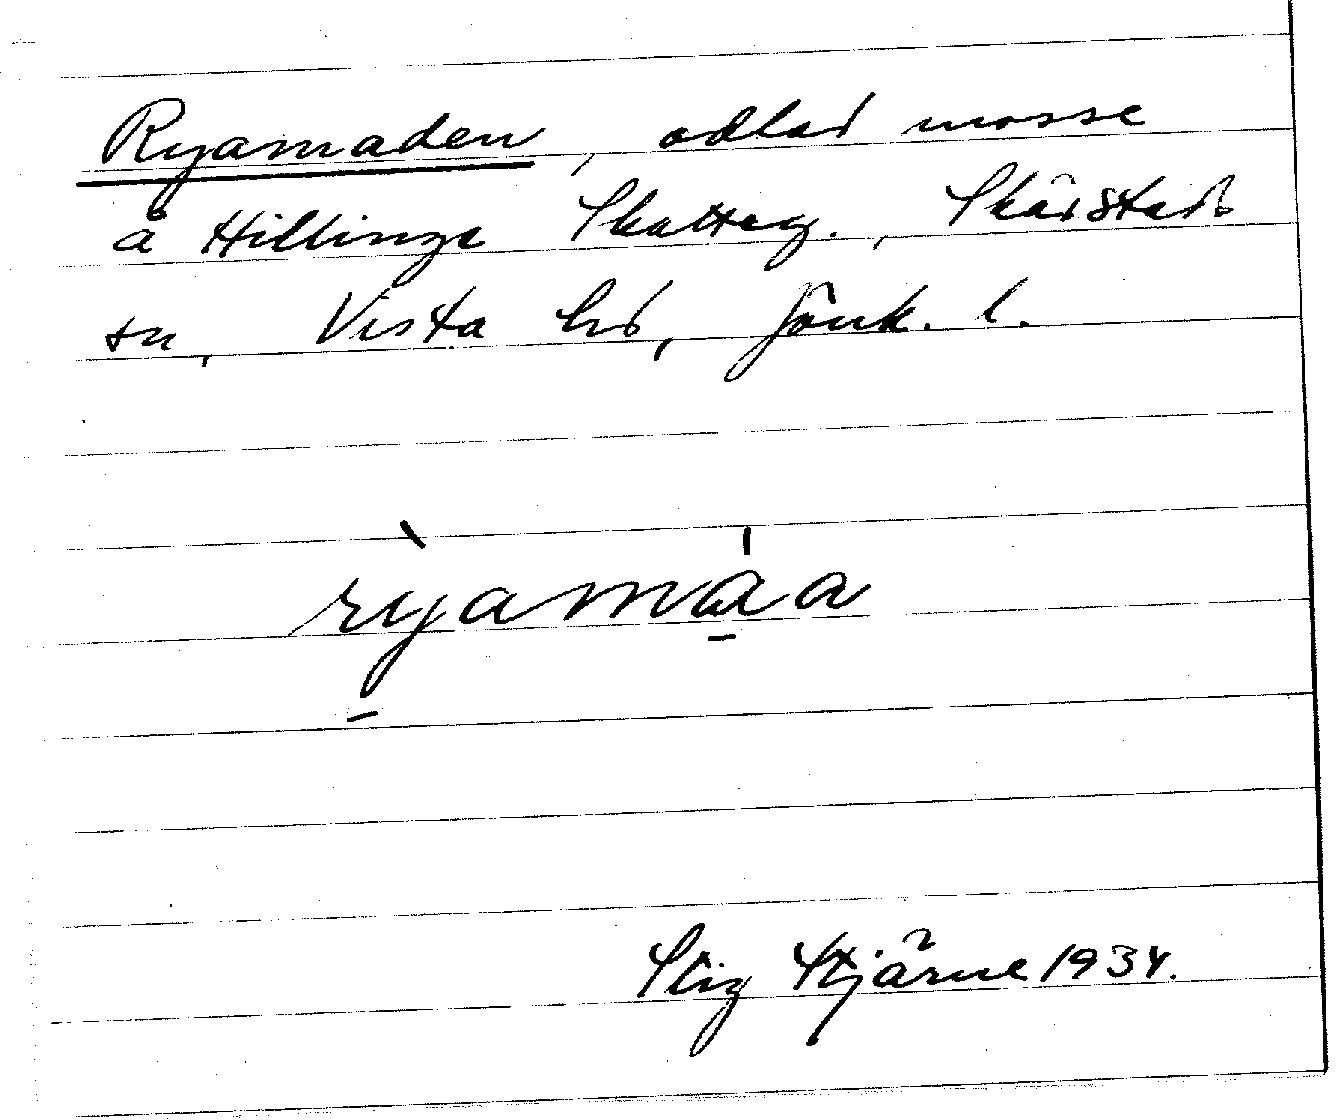 Ryamaden, odlad mosse
å Hillinge Skatteg., Skärstads
sn, Vista hd, Jönk. l.
rỳamáa
Stig Stjärne 1934.